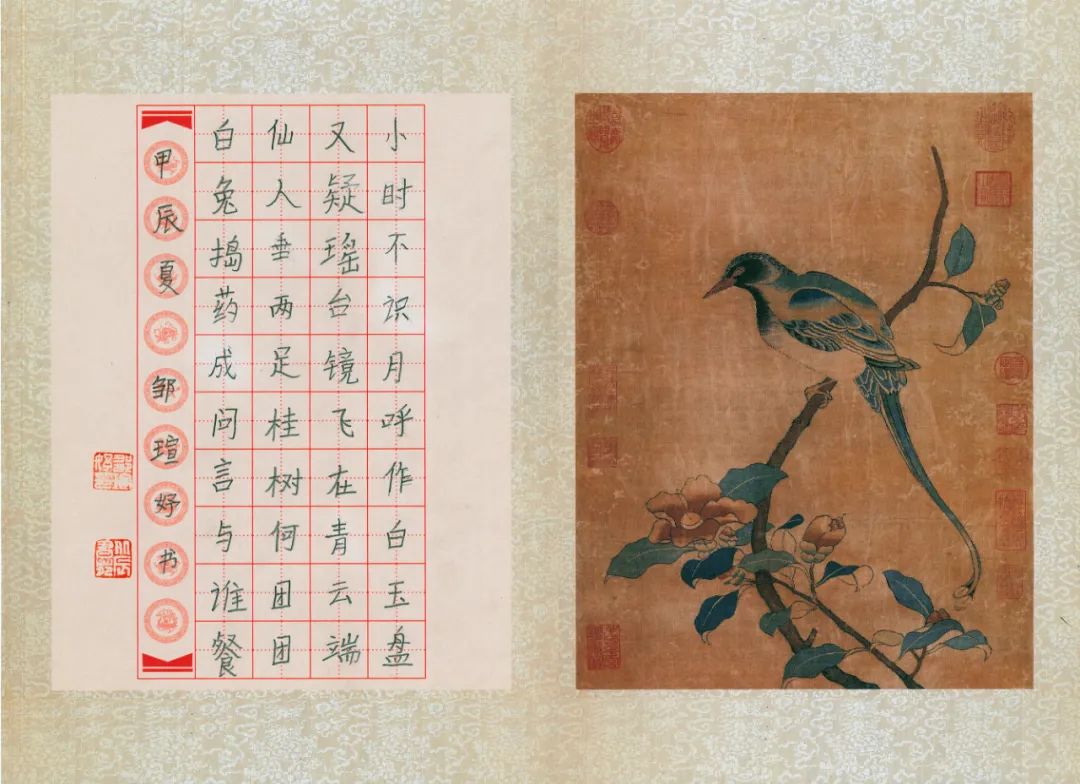 小时不识月呼作白玉盘
又疑瑶台镜飞在青云端
仙人垂两足桂树何团团
白兔捣药成问言与谁餐
甲辰夏 邹瑄妤书